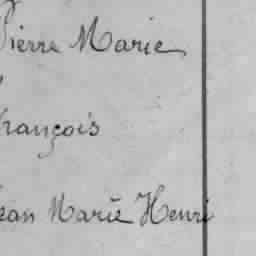 Pierre Marie
François
Jean Marie Henri